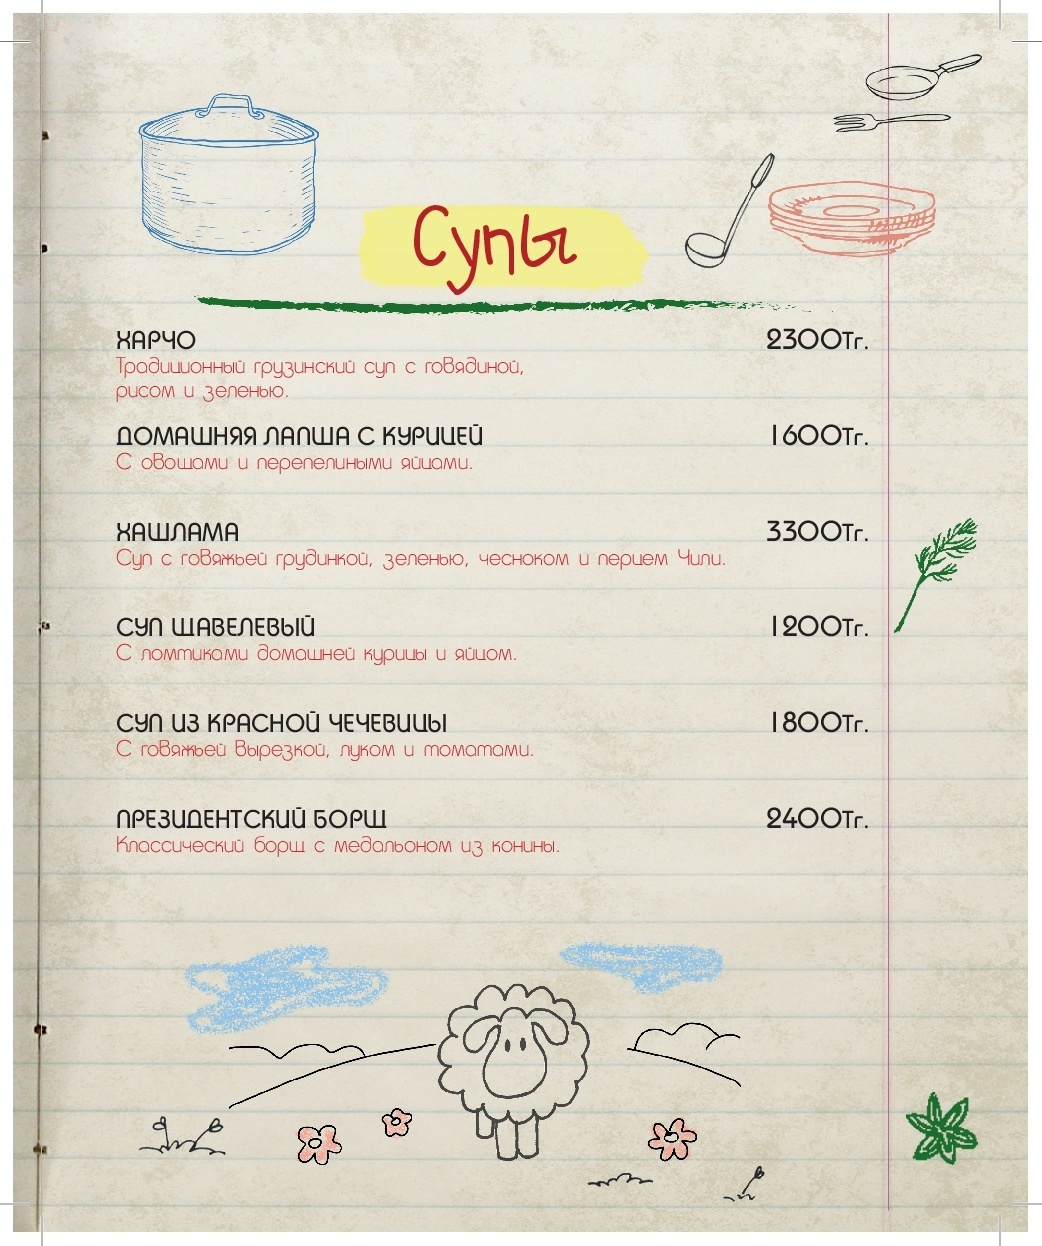 Супы
ХАРЧО 2300Тг.
Традиционный грузинский суп с говядиной,
рисом и зеленью.
ДОМАШНЯЯ ЛАПША С КУРИЦЕЙ 1600Тг.
С овощами и перепелиными яйцами.
ХАШЛАМА 3300Тг.
Суп с говяжьей грудинкой, зеленью, чесноком и перцем Чили.
СУП ЩАВЕЛЕВЫЙ 1200Тг.
С ломтиками домашней курицы и яйцом.
СУП ИЗ КРАСНОЙ ЧЕЧЕВИЦЫ 1800Тг.
С говяжьей вырезкой, луком и томатами.
ПРЕЗИДЕНТСКИЙ БОРЩ 2400Тг.
Классический борщ с медальоном из конины.